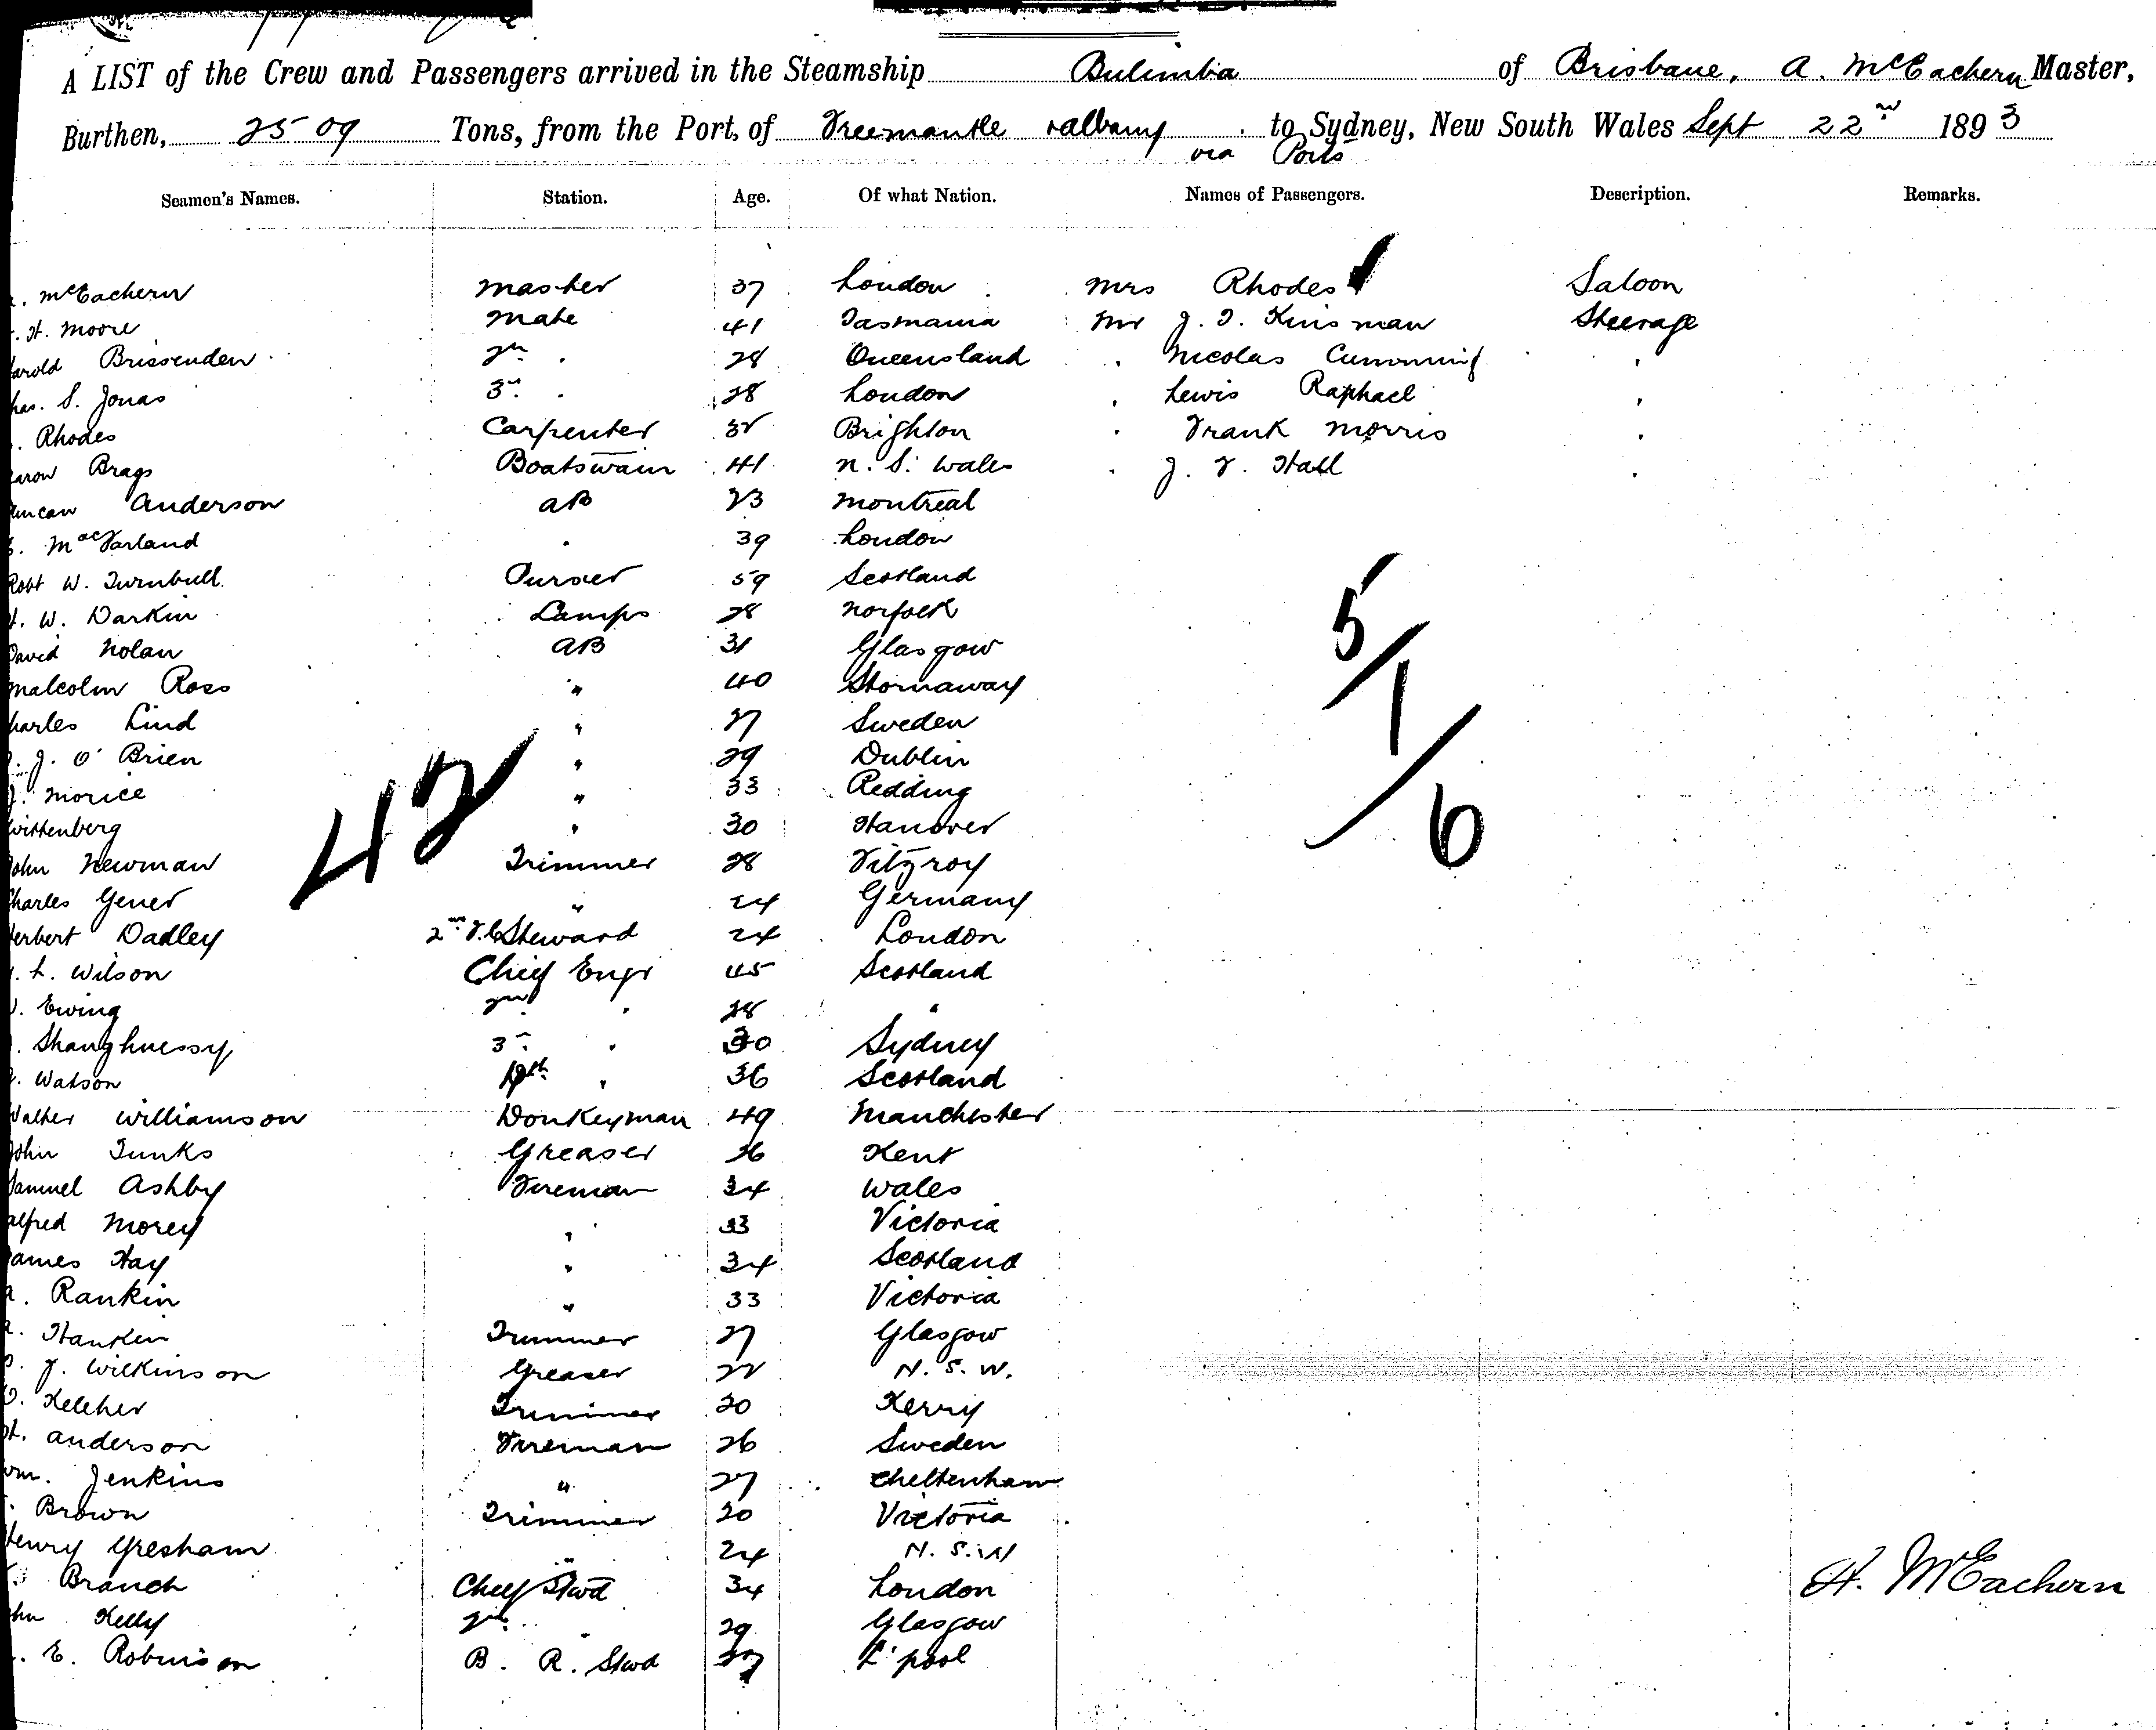 A LIST of the Crew and Passengers arrived in the Steamship Bulimba of Brisbane, A. McEachern Master,
Burthen, 2509 Tons, from the Port of Freemantle & Albany to Sydney, New South Wales Sept 22nd 1893
via Ports
Seamen's Names. Station. Age. Of what Nation. Names of Passengers. Description. Remarks.
McEachern Master 37 London Mrs Rhodes Saloon
H. Moore Mate 41 Tasmania Mr J. T. Kinsman Steerage
arold Brissenden 2nd " 28 Queensland " Nicolas Cumming "
has. S. Jonas 3rd " 28 London " Lewis Raphael "
Rhodes Carpenter 32 Brighton " Frank Morris "
aron Brags Boatswain 41 N. S. Wales " J. F. Hall "
uncan Anderson AB 23 Montreal
MacFarland " 39 London
Robt W. Turnbull Purser 59 Scotland
H. W. Darkin Lamps 28 Norfolk
David Nolan AB 31 Glasgow
Malcolm Ross " 40 Stornaway
harles Lind " 27 Sweden
J. O'Brien " 29 Dublin
J. Morice " 33 Redding
Wittenberg " 30 Hanover
John Newman Trimmer 28 Fitzroy
Charles Gener " 24 Germany
erbert Dadley 2nd F.C Steward 24 London
L. Wilson Chief Engr 45 Scotland
Ewing 2nd " 28 "
Shanghnessy 3rd " 30 Sydney
Watson 4th " 36 Scotland
Walter Williamson Donkeyman 49 Manchester
John Tunks Greaser 26 Kent
Samuel Ashby Fireman 34 Wales
Alfred Morey " 33 Victoria
James Hay " 34 Scotland
Rankin " 33 Victoria
Hankin Trimmer 27 Glasgow
J. Wilkinson Greaser 22 N. S. W.
D. Keleher Trimmer 20 Kerry
H. Anderson Fireman 26 Sweden
Wm. Jenkins " 27 Cheltenham
Brown Trimmer 20 Victoria
Henry Gresham " 24 N. S. W
Branch Chief Stwd 34 London
ohn Kelly 2nd " 29 Glasgow
E. Robinson B. R. Stwd 27 L'pool
42
5/1/6
A. McEachern